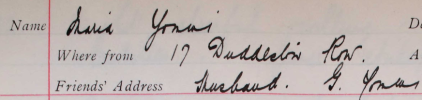 Name Maria Youns D
Where from 17 Duddeston Row. A
Friends' Address Husband. G. Youns